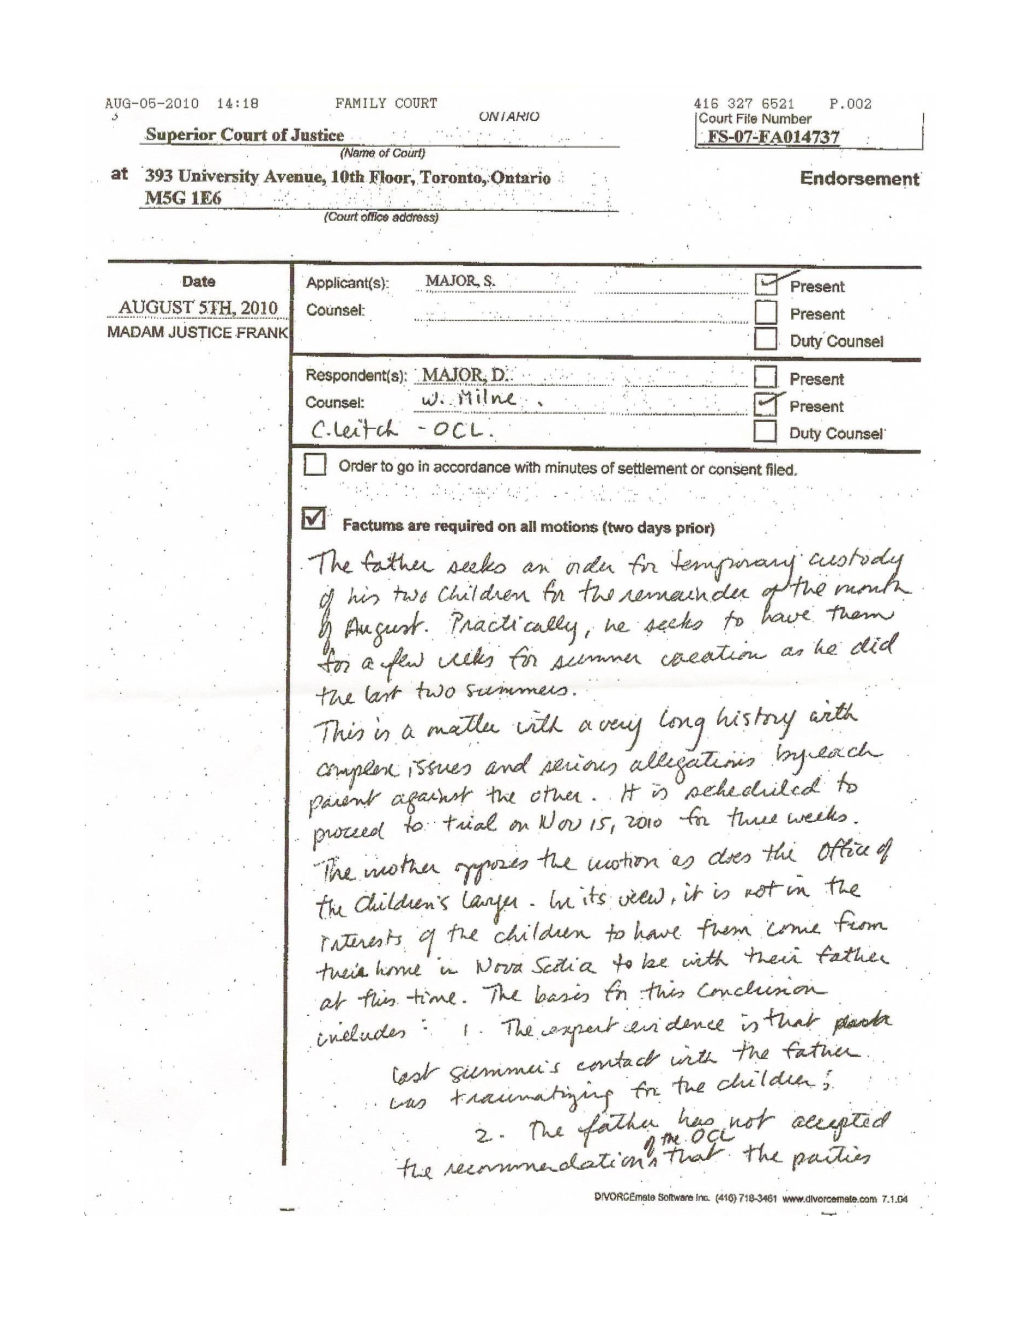 AUG-05-2010 14:18 FAMILY COURT 416 327 6521 P.002
ONTARIO
Court File Number
Superior Court of Justice
FS-07-FA014737
(Name of Court)
at 393 University Avenue, 10th Floor, Toronto, Ontario
Endorsement
M5G 1E6
(Court office address)
Date
AUGUST 5TH, 2010
MADAM JUSTICE FRANK
Applicant(s): MAJOR, S. Present
Counsel: Present
Duty Counsel
Respondent(s): MAJOR, D. Present
Counsel: W. Milne. Present
C. Leitch - OCL. Duty Counsel
Order to go in accordance with minutes of settlement or consent filed.
Factums are required on all motions (two days prior)
The father seeks an order for temporary custody
of his two children for the remainder of the month
of August. Practically, he seeks to have them
for a few weeks for summer vacation as he did
the last two summers.
This is a matter with a very long history with
complex issues and serious allegations by each
parent against the other. It is scheduled to
proceed to trial on Nov 15, 2010 for three weeks.
The mother opposes the motion as does the Office of
the Children's Lawyer. In its view, it is not in the
interests of the children to have them come from
their home in Nova Scotia to be with their father
at this time. The basis for this conclusion
includes: 1. The expert evidence is that
last summer's contact with the father
was traumatizing for the children;
2. The father has not accepted
the recommendations of the OCL that the parties
DIVORCEmate Software Inc. (416) 718-3461 www.divorcemate.com 7.1.04